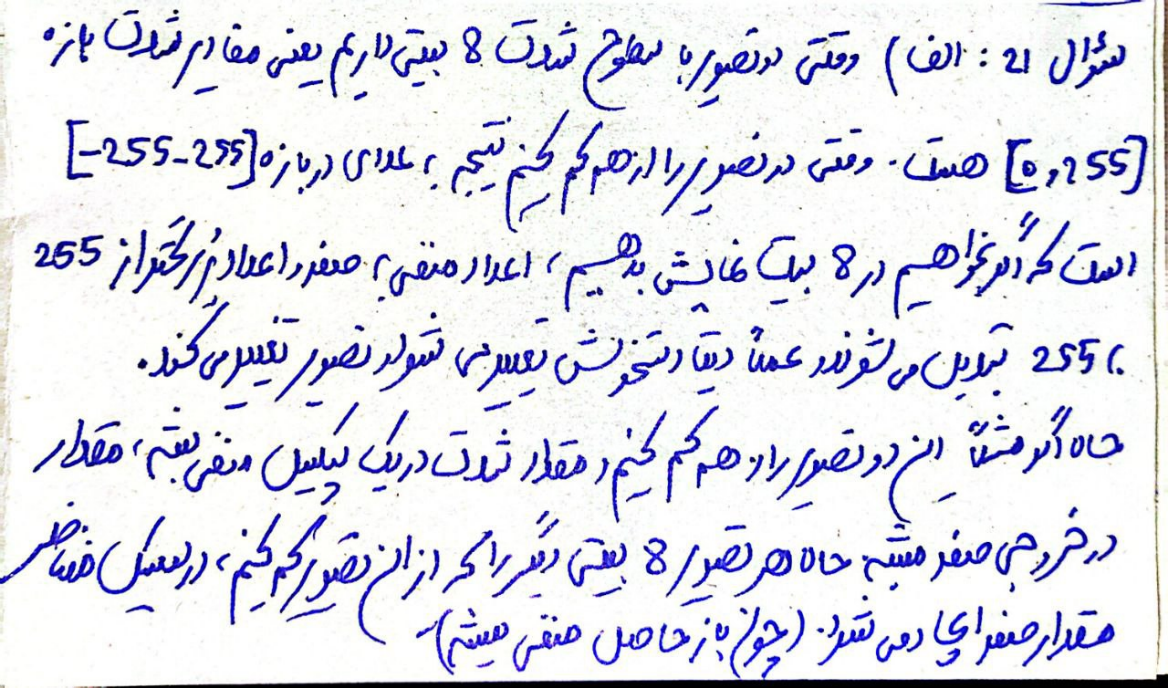 سؤال 21 : الف) وقتی دو تصویر با سطوح شدت 8 بیتی داریم یعنی مقادیر شدت بازه
[0,255] هست. وقتی دو تصویر را از هم کم کنیم نتیجه، عددی در بازه [-255-255]
است که اگر بخواهیم در 8 بیت نمایش بدهیم، اعداد منفی به صفر و اعداد بزرگتر از 255
به 255 تبدیل می شوند و عملاً دیتا دستخوش تغییر می شود و تصویر تغییر می کند.
حالا اگر مثلاً این دو تصویر را از هم کم کنیم و مقدار شدت در یک پیکسل منفی بشه، مقدار
در خروجی صفر میشه حالا هر تصویر 8 بیتی دیگر را که از آن تصویر کم کنیم، در پیکسل متناظر
مقدار صفر ایجاد می شود. (چون باز حاصل منفی میشه)